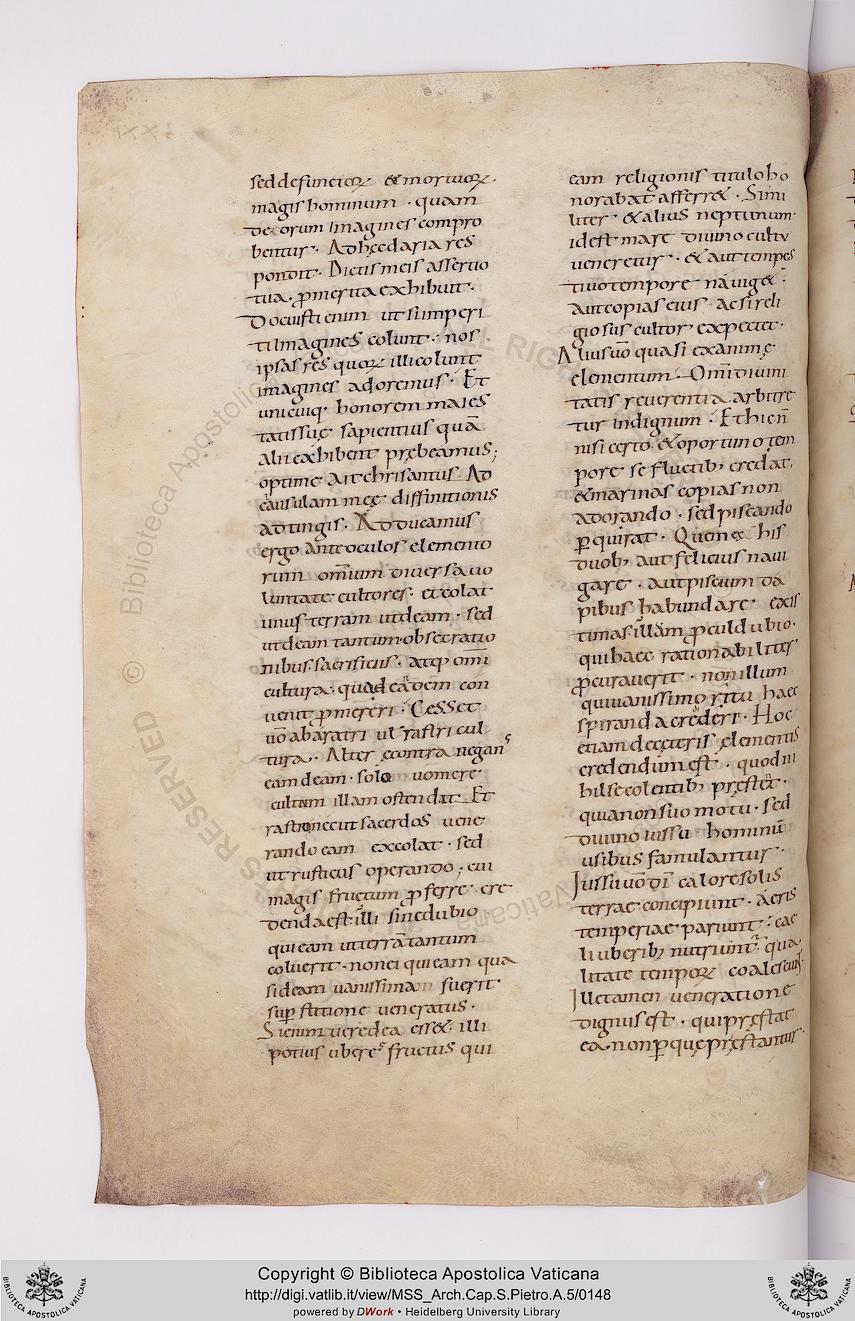 sed defunctoꝝ & mortuoꝝ.
magis hominum · quam
deorum imagines compro
bentur · Ad hęc daria res
pondit · Dictis meis assertio
tua · ꝓmerita exhibuit ·
Docuisti enim ut si imperi
ti imagines colunt · nos
ipsas res quoꝝ illi colunt
imagines adoremus · Et
unicuiq· honorem maies
tatis suę sapientius quā
alii exhibent prębeamus;
optime ait chrisantus · Ad
causulam meę diffinitionis
adtingis · Adducamus
ergo ante oculos elemento
rum om̄ium diversa vo
luntate cultores · et colat
unus terram ut deam · sed
ut deam tantum obsecratio
nibus · sacrificiis · atq; om̄i
cultura · qua ead̄em con
uenit ꝓmereri · Cesset
uō ab aratri ul rastri cul
tura · Alter econtra negans
eam deam · solo uomere
cultam illam ostendat · Et
rastro nec ut sacerdos uene
rando eam excolat · sed
ut rusticus operando; cui
magis fructum ꝓferre cre
denda est illi sine dubio
qui eam ut terrā tantum
coluerit · non ei qui eam qua
si deam uanissima fuerit
suꝑstitione ueneratus ·
Si enim uere dea ess& · illi
potius uberes fructus qui
eam religionis titulo ho
norabat afferr& · Simi
liter · & alius neptunum
id est mare diuino cultu
ueneretur · & aut tempes
tiuo tempore nauig& ·
aut copias eius ac si reli
giosus cultor expectet ·
Alius uō quasi exanimę
elementum · Om̄i diuini
tatis reuerentia arbitre
tur indignum · Et hic n̄
nisi certo & oportuno tem
pore se fluctib; credat,
& marinas copias non
adorando · sed piscando
ꝑquirat · Quem ex his
duob; aut felicius naui
gare · aut piscium da
pibus habundare exis
timas · illām ꝓcul dubio ·
qui haec rationabiliter
ꝓcurauerit · non illum
qui uanissimo ritu haec
speranda crēderet · Hoc
etiam de cęteris elementis
credendum est · quod ni
hil se colentib; pręstet ·
quia non suo motu · sed
diuino iussu hominū
usibus famulantur ·
Jussu uō d̄i calore solis
terrae concipiunt · aeris
temperiae pariunt · cae
li uberib; nutriunt qua
litate tempoꝝ coalescunt
Ille tamen ueneratione
dignus est · qui pręstat
ea · non ꝑ quę pręstantur ·
© Biblioteca Apostolica Vaticana
ALL RIGHTS RESERVED
Copyright © Biblioteca Apostolica Vaticana
http://digi.vatlib.it/view/MSS_Arch.Cap.S.Pietro.A.5/0148
powered by DWork • Heidelberg University Library
BIBLIOTECA APOSTOLICA VATICANA
BIBLIOTECA APOSTOLICA VATICANA